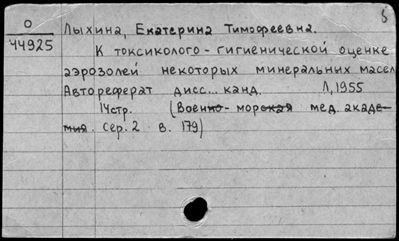 5
О
44925
Лыхина, Екатерина Тимофеевна.
К токсиколого-гигиенической оценке
аэрозолей некоторых минеральных масел
Автореферат дисс... канд. Л, 1955
14стр. (Военно-морская мед. акаде-
мия. Сер. 2 в. 179)